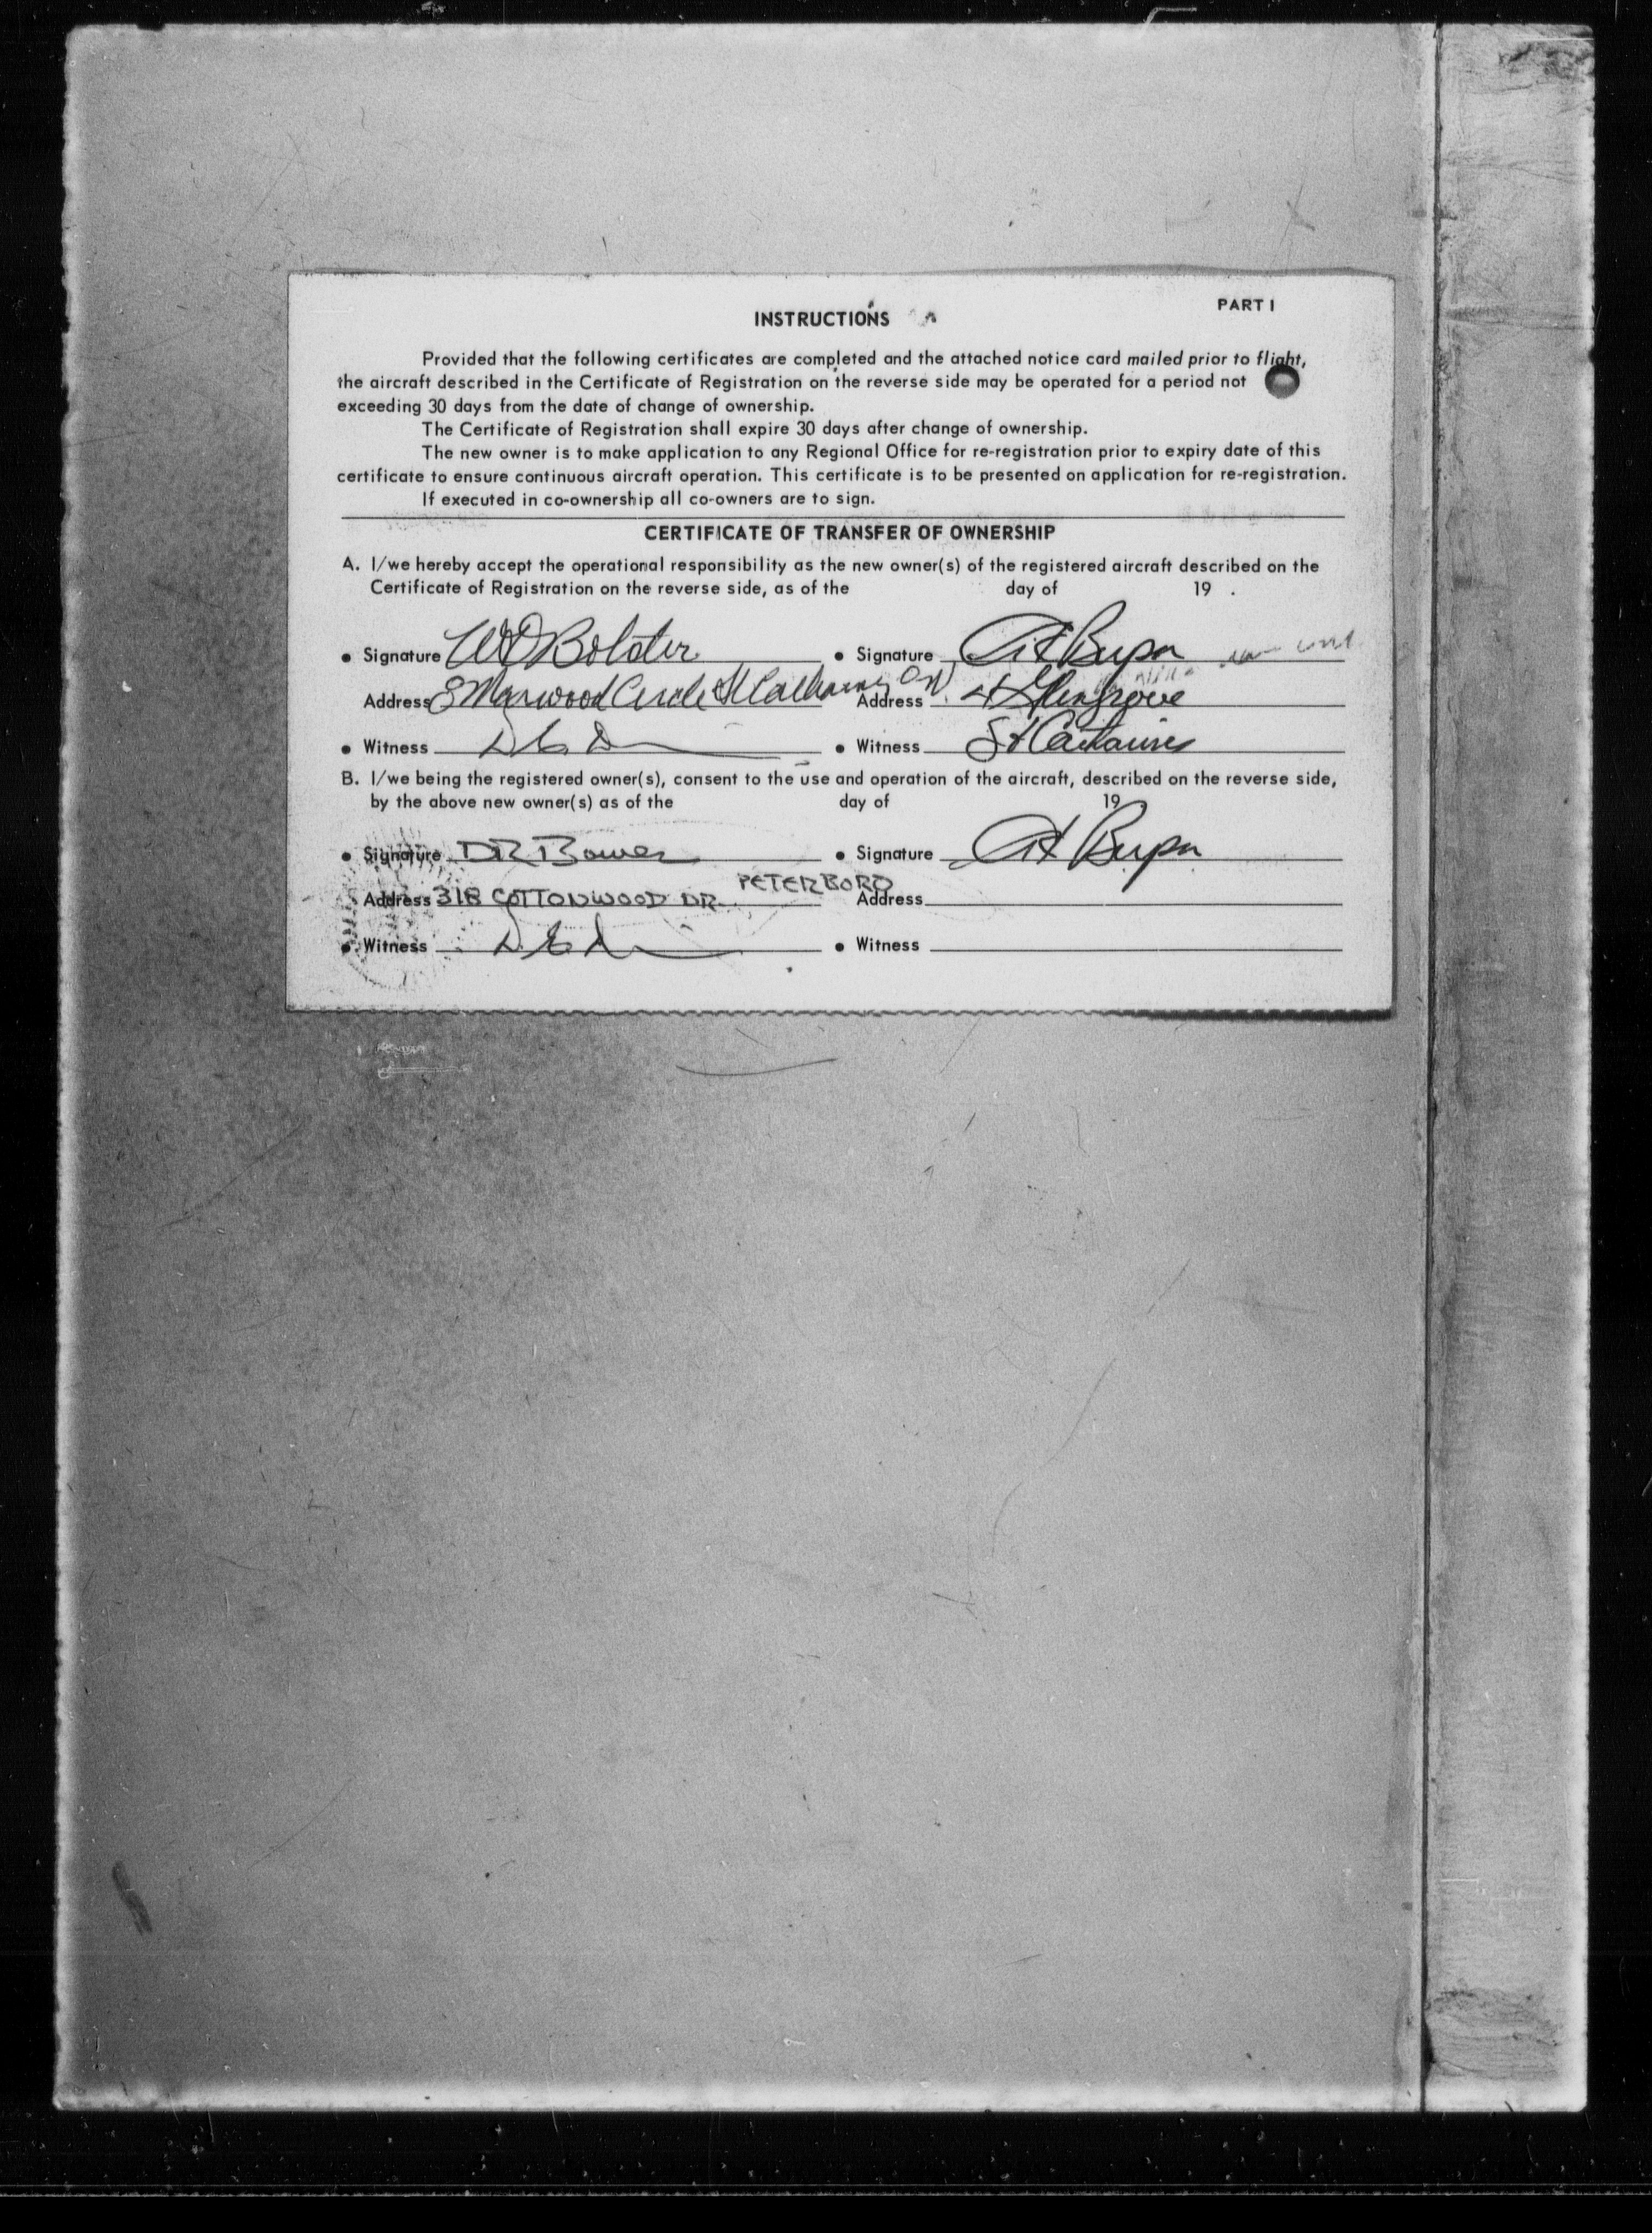 PART I
INSTRUCTIONS
Provided that the following certificates are completed and the attached notice card mailed prior to flight,
the aircraft described in the Certificate of Registration on the reverse side may be operated for a period not
exceeding 30 days from the date of change of ownership.
The Certificate of Registration shall expire 30 days after change of ownership.
The new owner is to make application to any Regional Office for re-registration prior to expiry date of this
certificate to ensure continuous aircraft operation. This certificate is to be presented on application for re-registration.
If executed in co-ownership all co-owners are to sign.
CERTIFICATE OF TRANSFER OF OWNERSHIP
A. I/we hereby accept the operational responsibility as the new owner(s) of the registered aircraft described on the
Certificate of Registration on the reverse side, as of the day of 19 .
• Signature WD Bolster • Signature Art
Address 8 Marwood Circle St Catharines Ont. Address 4 Glengrove
• Witness • Witness St Catharines
B. I/we being the registered owner(s), consent to the use and operation of the aircraft, described on the reverse side,
by the above new owner(s) as of the day of 19
• Signature DR Bower • Signature Art
Address 318 COTTONWOOD DR. PETERBORO Address
• Witness • Witness